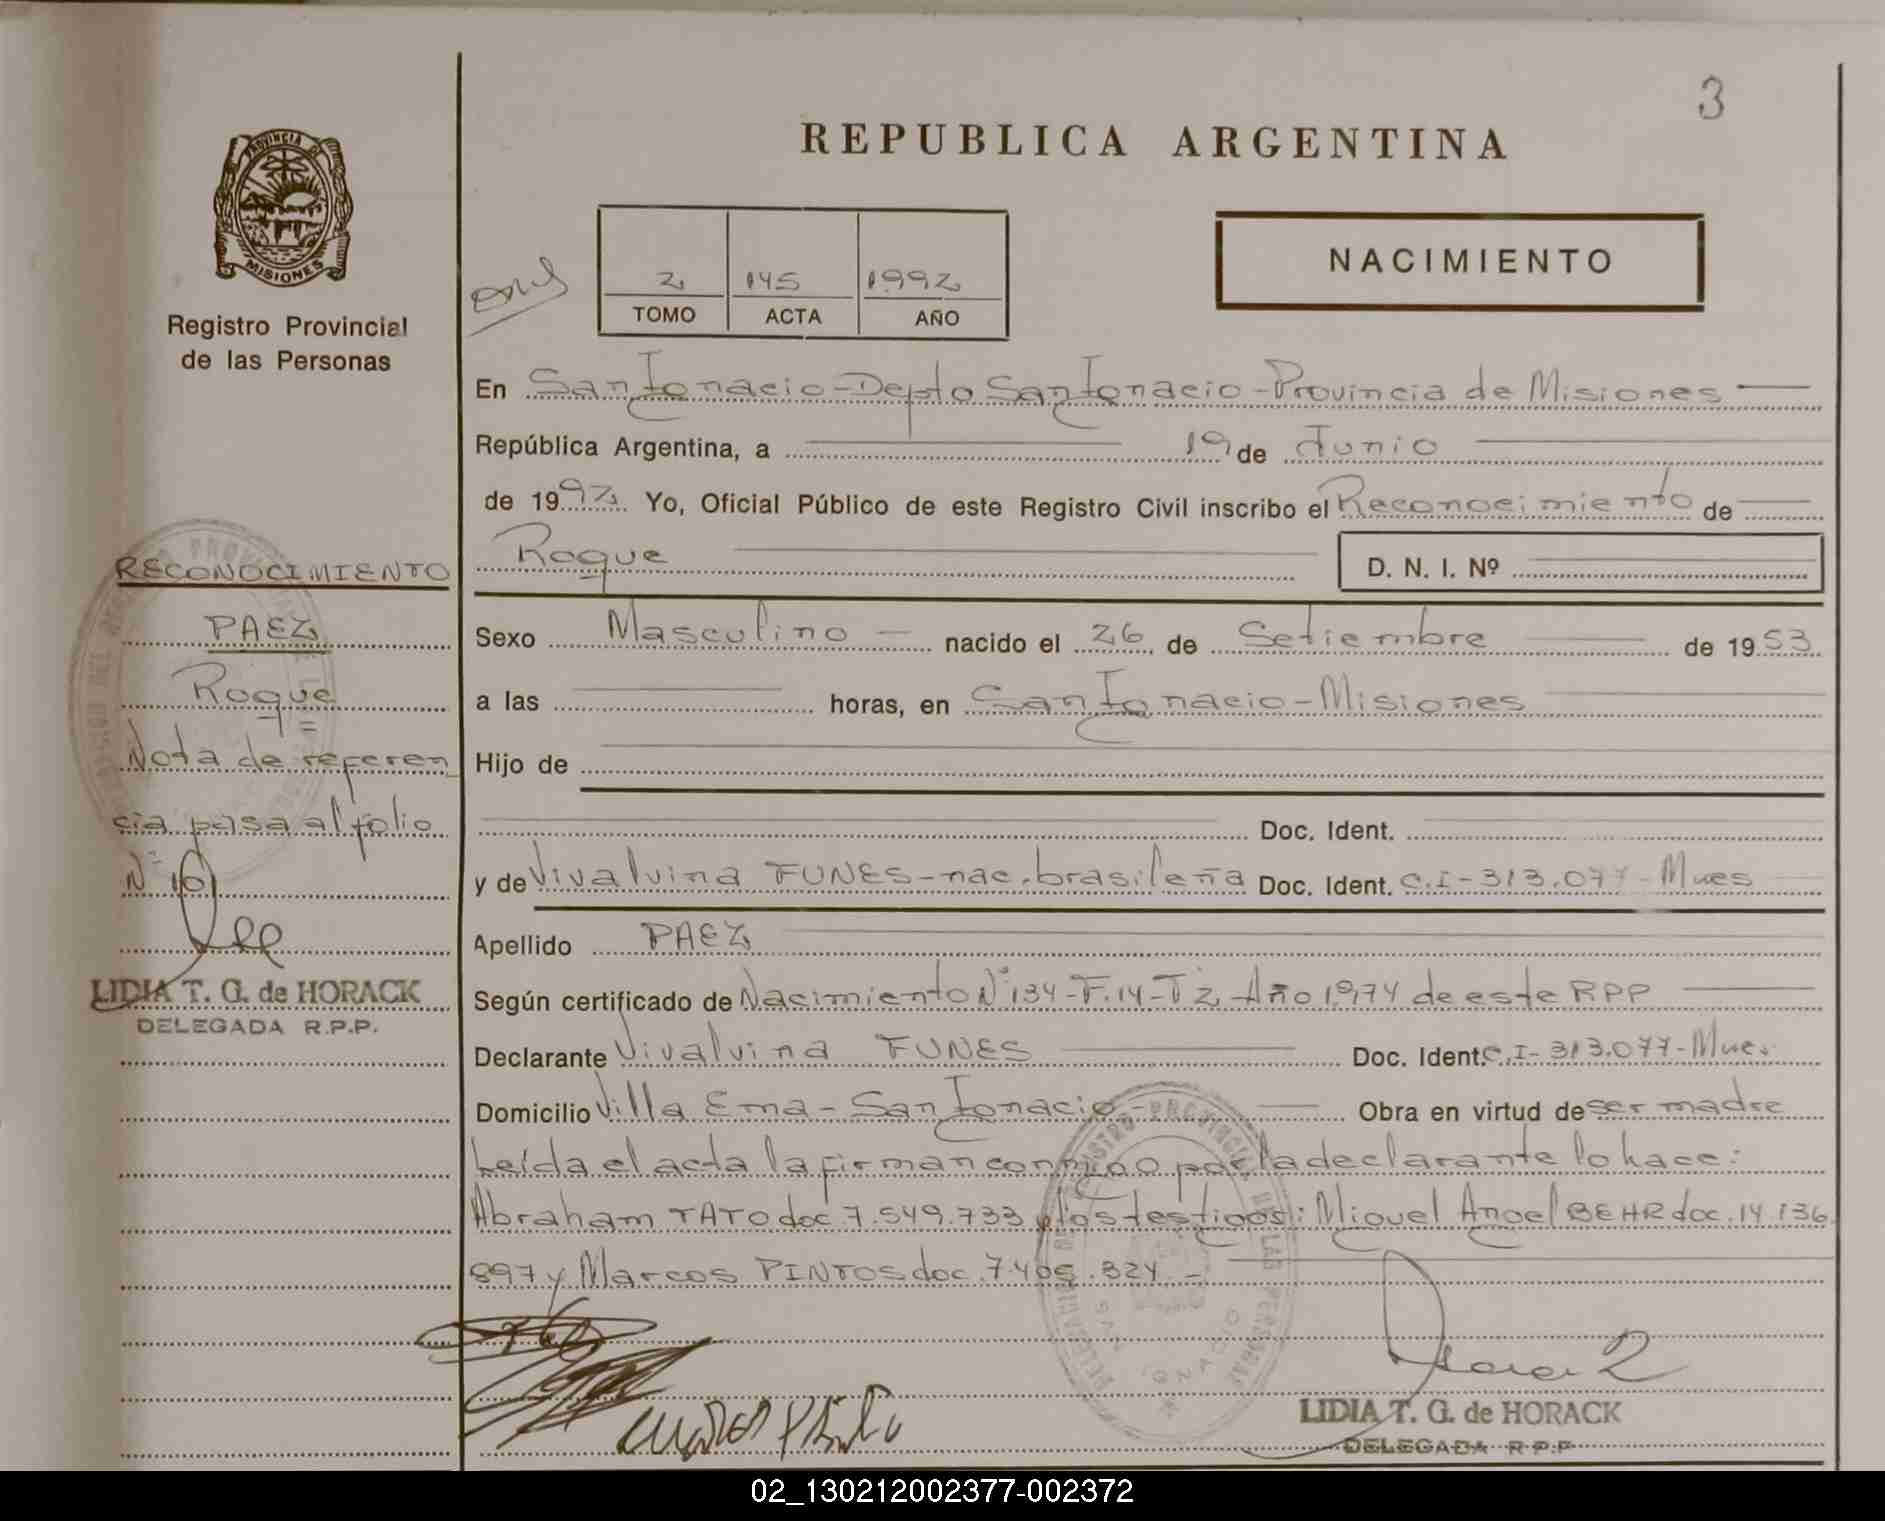 3
REPUBLICA ARGENTINA
PROVINCIA DE
MISIONES
Registro Provincial
de las Personas
2 145 1992
TOMO ACTA AÑO
NACIMIENTO
En San Ignacio - Depto San Ignacio - Provincia de Misiones
República Argentina, a 19 de Junio
de 1992 Yo, Oficial Público de este Registro Civil inscribo el Reconocimiento de
Roque D. N. I. Nº
Sexo Masculino nacido el 26 de Setiembre de 1953
a las horas, en San Ignacio - Misiones
Hijo de
Doc. Ident.
y de Vivalvina FUNES - nac. brasileña Doc. Ident. C.I - 313.077 - Mnes
Apellido PAEZ
Según certificado de Nacimiento Nº 134 - F. 14 - T 2 - Año 1974 de este RPP
Declarante Vivalvina FUNES Doc. Ident. C.I - 313.077 - Mnes
Domicilio Villa Ema - San Ignacio - Obra en virtud de ser madre
Leída el acta la firman conmigo por la declarante lo hace:
Abraham TATO doc. 7.549.733 y los testigos: Miguel Angel BEHR doc. 14.136.
897 y Marcos PINTOS doc. 7.405.324 -
LIDIA T. G. de HORACK
DELEGADA R.P.P.
RECONOCIMIENTO
PAEZ
Roque
Nota de referen
cia pasa al folio
Nº 101
LIDIA T. G. de HORACK
DELEGADA R.P.P.
02_130212002377-002372